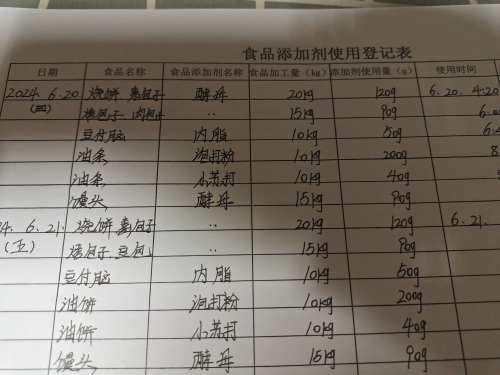 食品添加剂使用登记表
日期 食品名称 食品添加剂名称 食品加工量(kg) 添加剂使用量(g) 使用时间
2024.6.20 烧饼 素包子 酵母 20kg 120g 6.20. 4:20
(四) 烤包子 肉包子 〃 15kg 90g 6:
豆付脑 内脂 10kg 50g 6:
油条 泡打粉 10kg 200g 8
油条 小苏打 10kg 40g
馒头 酵母 15kg 90g
24.6.21. 烧饼 素包子 〃 20kg 120g 6.21.
(五) 烤包子 豆包 〃 15kg 90g
豆付脑 内脂 10kg 50g
油饼 泡打粉 10kg 200g
油饼 小苏打 10kg 40g
馒头 酵母 15kg 90g